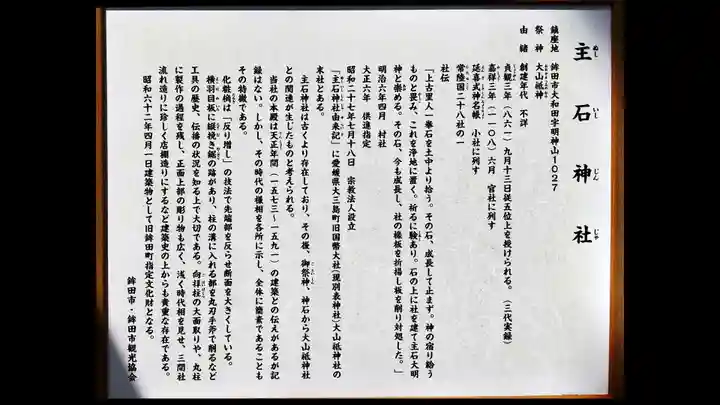 主石神社
ぬし いし じん じゃ
鎮座地 鉾田市大和田字明神山1027
祭神 大山祗神
由緒 創建年代 不詳
貞観三年(八六一)九月十三日従五位上を授けられる。(三代実録)
嘉祥三年(一一〇八)六月 官社に列す
延喜式神名帳 小社に列す
常陸国二十八社の一
社伝
「上古里人一拳石を土中より拾う。その石、成長して止まず。神の宿り給う
ものと畏み、これを浄地に置く。祈るに験あり。石の上に社を建て主石大明
神と崇める。その石、今も成長し、社の橡板を折損し板を削り対処した。」
明治六年四月 村社
大正六年 供進指定
昭和二十七年七月十八日 宗教法人設立
「主石神社由来記」に愛媛県大三島町旧国幣大社(現別表神社)大山祗神社の
末社とある。
主石神社は古くより存在しており、その後、御祭神、神石から大山祗神社
との関連が生じたものと考えられる。
当社の本殿は天正年間(一五七三~一五九一)の建築との伝えがあるが記
録はない。しかし、その時代の様相を各所に示し、全体に簡素であることも
その特徴である。
化粧槌は「反り増し」の技法で先端部を反らせ断面を大きくしている。
横羽目板に縦挽き鋸の跡があり、柱の溝に入れる部を丸刃手斧で削るなど
工具の歴史、伝播の状況を知る上で大切である。向拝柱の大面取りや、丸柱
に製作の過程を残し、正面上部の彫り物も広く、浅く時代相を見せ、三間社
流れ造りに珍しく店棚造りにするなど建築史の上からも貴重な存在である。
昭和六十二年四月一日建築物として旧鉾田町指定文化財となる。
鉾田市・鉾田市観光協会